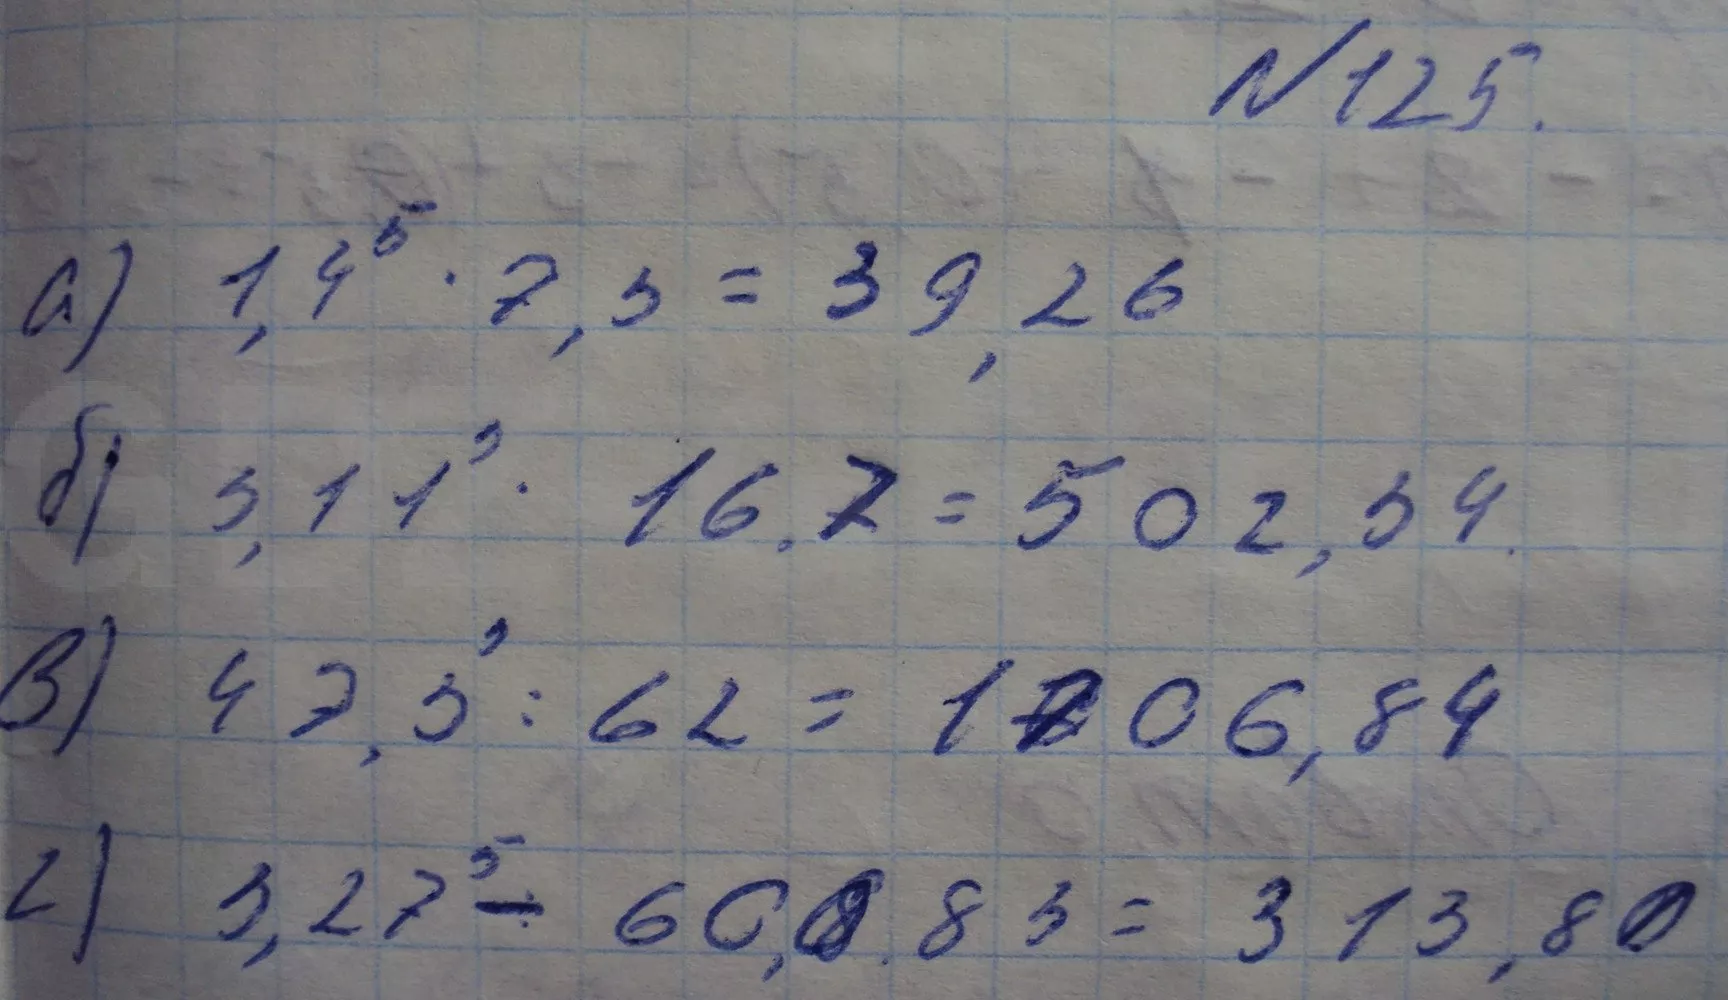 N125.
а) 1,4⁵ · 7,3 = 39,26
б) 3,11³ · 16,7 = 502,34.
в) 47,3³ : 62 = 1706,84
г) 3,27⁵ - 60,083 = 313,80